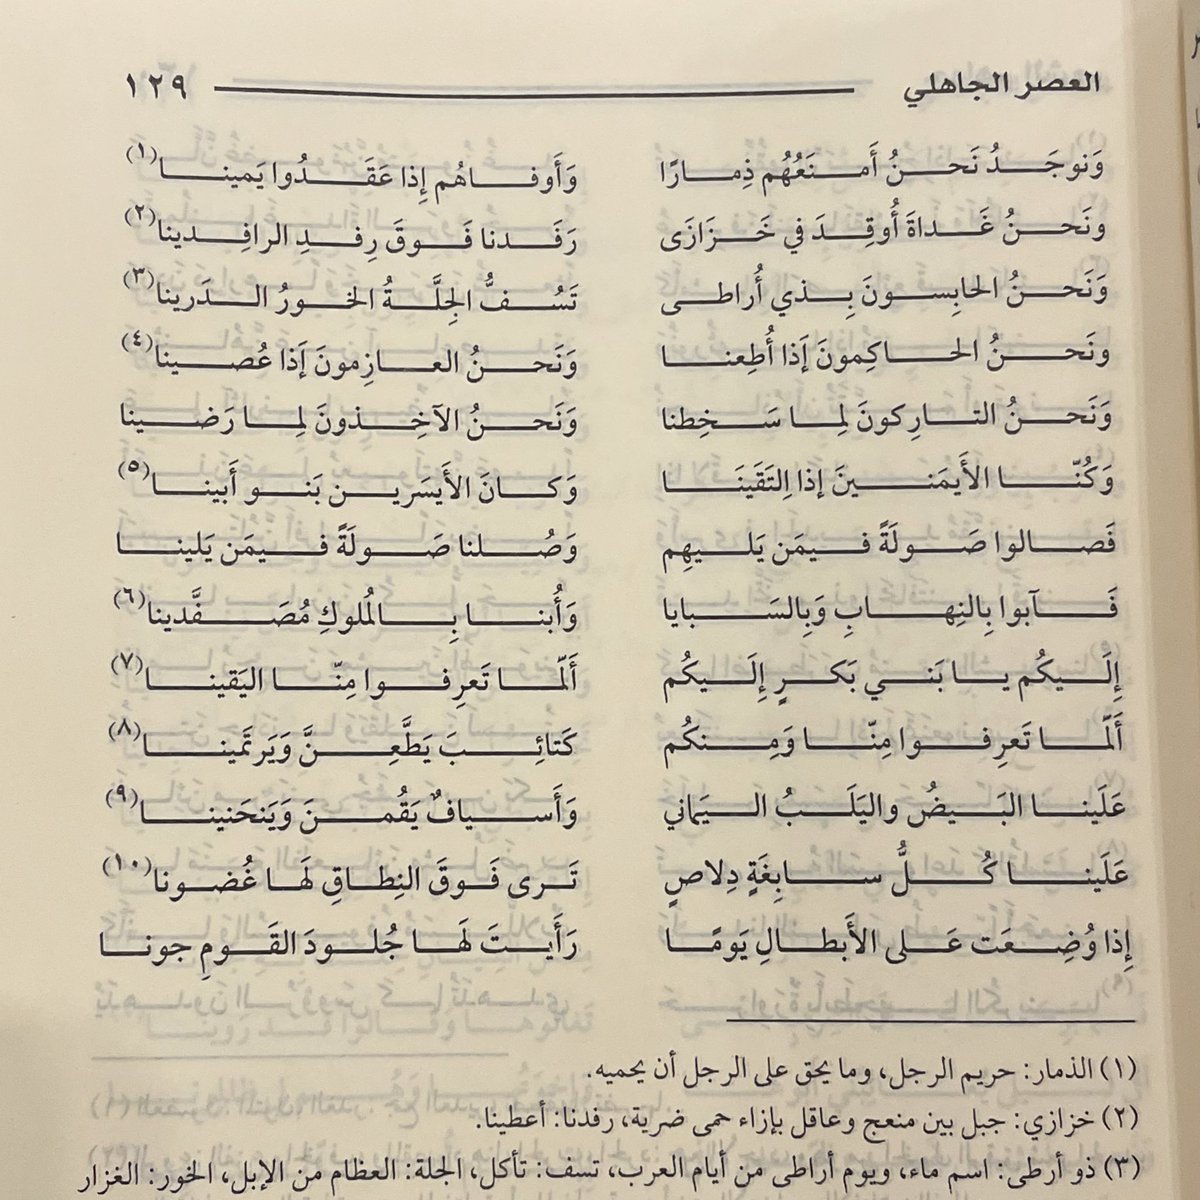 العصر الجاهلي ١٢٩
وَنوجَدُ نَحنُ أَمنَعُهُم ذِمارًا وَأَوفاهُم إِذا عَقَدُوا يَمينا(١)
ونَحنُ غَداةَ أُوقِدَ في خَزَازَى رَفَدنا فَوقَ رِفدِ الرافِدينا(٢)
وَنَحنُ الحابِسونَ بِذي أُراطى تَسُفُّ الجِلَّةُ الخورُ الدَرينا(٣)
ونَحنُ الحاكِمونَ إَذا أُطِعنا وَنَحنُ العازِمونَ إَذا عُصينا(٤)
وَنَحنُ التارِكونَ لِما سَخِطنا وَنَحنُ الآخِذونَ لِما رَضينا
وَكُنّا الأَيمَنينَ إذا اِلتَقَينَا وَكانَ الأَيسَرين بَنو أَبينا(٥)
فَصالوا صَولَةً فيمَن يَليهِم وَصُلنا صَولَةً فيمَن يَلينا
فَآبوا بِالنِهابِ وَبِالسَبايا وَأُبنا بِالمُلوكِ مُصَفَّدينا(٦)
إِلَيكُم يا بَني بَكرٍ إِلَيكُم أَلَمّا تَعرِفوا مِنّا اليَقينا(٧)
أَلَمّا تَعرِفوا مِنّا وَمِنكُم كَتائِبَ يَطَّعِنَّ وَيَرتَمينا(٨)
عَلَينا البَيضُ واليَلَبُ اليَماني وَأَسيافٌ يَقُمنَ وَيَنحَنينا(٩)
عَلَينا كُلُّ سابِغَةٍ دِلاصٍ تَرى فَوقَ النِطاقِ لَها غُضونا(١٠)
إِذا وُضِعَت عَلى الأَبطالِ يَومًا رَأَيتَ لَها جُلودَ القَومِ جونا
(١) الذمار: حريم الرجل، وما يحق على الرجل أن يحميه.
(٢) خزازي: جبل بين منعج وعاقل بإزاء حمى ضرية، رفدنا: أعطينا.
(٣) ذو أرطى: اسم ماء، ويوم أراطى من أيام العرب، تسف: تأكل، الجلة: العظام من الإبل، الخور: الغزار